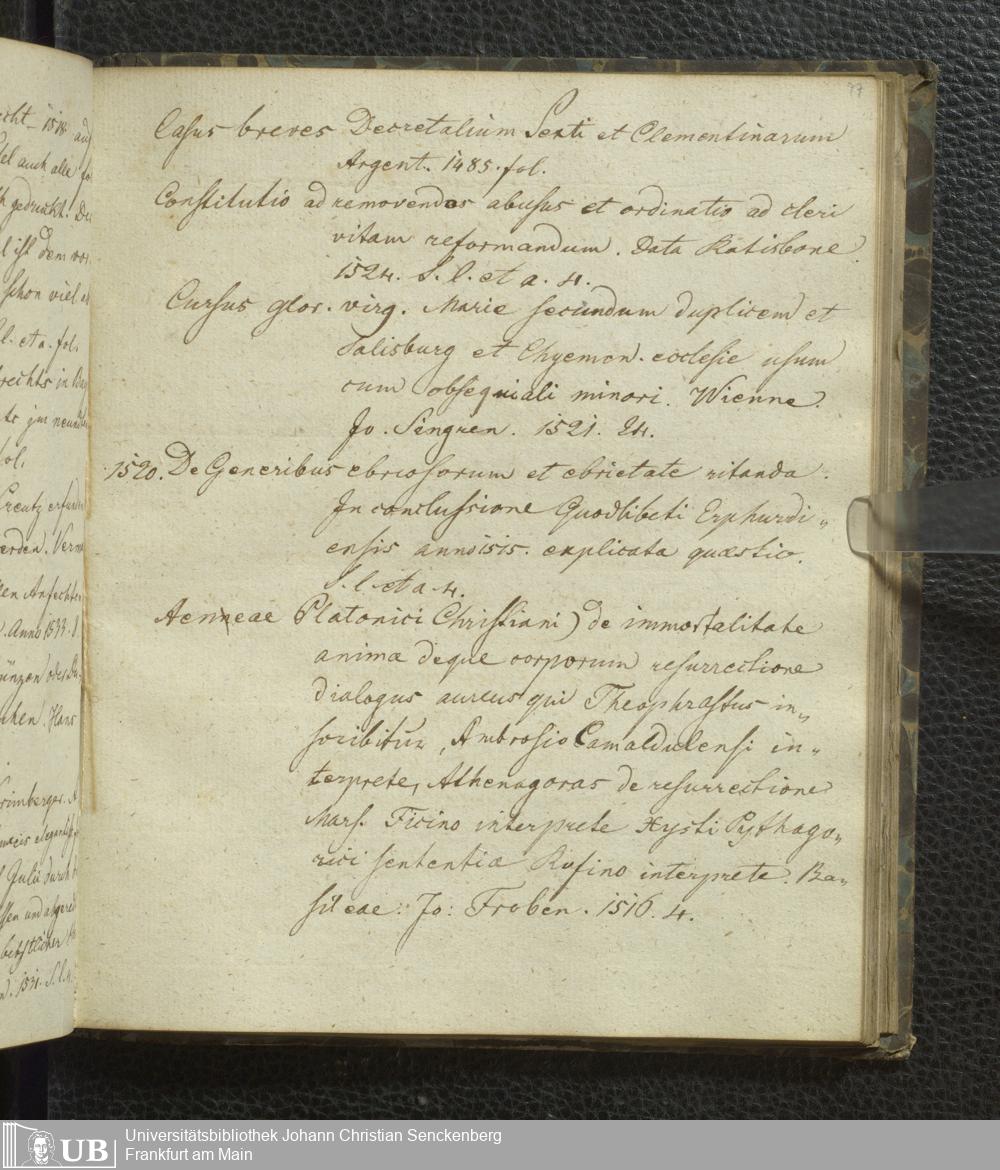 cht_ 1518. auf
el auch alle fo
gedruckt. De
l ist dem vor
schon viel
l. et a. fol.
rechts in Bay
ol.
Creutz erfunden
erden. Verm
en Anfechten
. Anno 1533. 8
ünzen oder
chen. Hans
. 1531. S. l. 4.
77
Casus breves Decretalium Sexti et Clementinarum
Argent. 1485. fol.
Constitutio ad removendos abusus et ordinatio ad cleri
vitam reformandum. Data Ratisbone.
1524. S. l. et a. 4.
Cursus glor. virg. Marie secundum duplicem et
Salisburg et Chyemon. ecclesie usum
cum obsequiali minori. Wienne.
Jo. Singren. 1521. 24.
1520. De Generibus ebriosorum et ebrietate vitanda.
In conclussione Quodlibeti Erphurdi„
ensis anno 1515. explicata quæstio.
S. l. et a. 4.
Aenneae Platonici Christiani) de immortalitate
animæ deque corporum resurrectione
dialogus aureus qui Theophrastus in„
scribitur, Ambrosio Camaldulensi in„
terprete, Athenagoras de resurrectione
Mars. Ficino interprete Xysti Pythago„
rici sententiæ Rufino interprete. Ba„
sileae: Jo: Froben. 1516. 4.
UB
Universitätsbibliothek Johann Christian Senckenberg
Frankfurt am Main